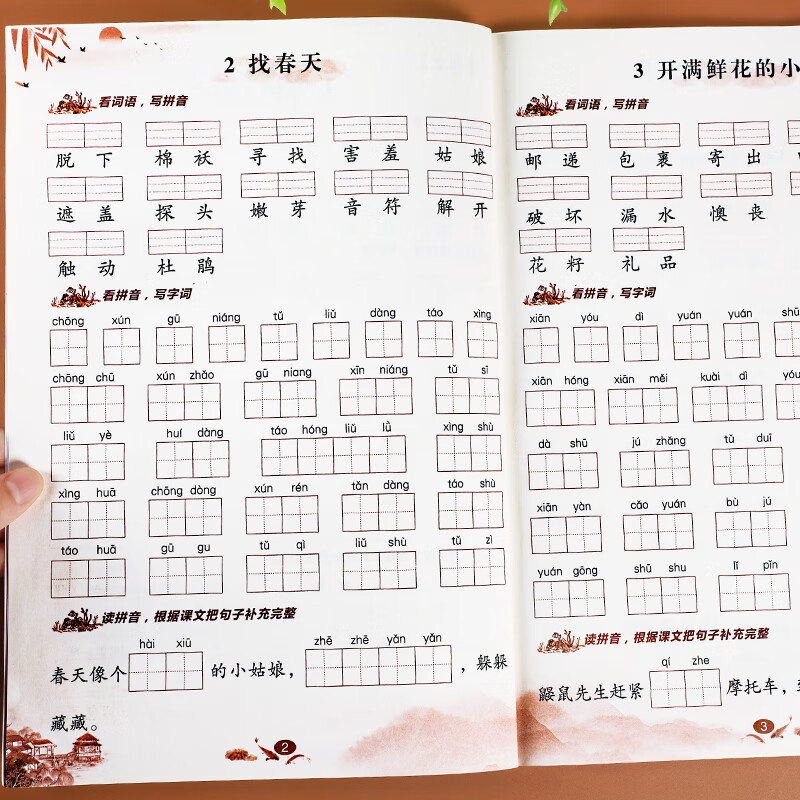 2 找春天
看词语，写拼音
脱下 棉袄 寻找 害羞 姑娘
遮盖 探头 嫩芽 音符 解开
触动 杜鹃
看拼音，写字词
chōng xún gū niáng tǔ liǔ dàng táo xìng
chōng chū xún zhǎo gū niang xīn niáng tǔ sī
liǔ yè huí dàng táo hóng liǔ lǜ xìng shù
xìng huā chōng dòng xún rén tǎn dàng táo shù
táo huā gū gu tǔ qì liǔ shù tǔ zì
读拼音，根据课文把句子补充完整
hài xiū zhē zhē yǎn yǎn
春天像个 的小姑娘， ，躲躲
藏藏。
2
3 开满鲜花的小
看词语，写拼音
邮递 包裹 寄出
破坏 漏水 懊丧
花籽 礼品
看拼音，写字词
xiān yóu dì yuán yuán shū
xiān hóng xiān měi kuài dì yóu
dà shū jú zhǎng tǔ duī
xiān yàn cǎo yuán bù jú
yuán gōng shū shu lǐ pǐn
读拼音，根据课文把句子补充完整
qí zhe
鼹鼠先生赶紧 摩托车，
3